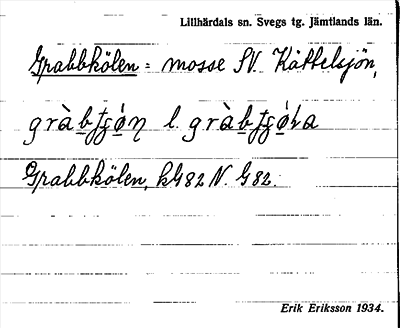 Lillhärdals sn. Svegs tg. Jämtlands län.
Grabbkölen = mosse SV. Kåttelsjön,
l.
Grabbkölen, kG 82 N. G 82.
Erik Eriksson 1934.